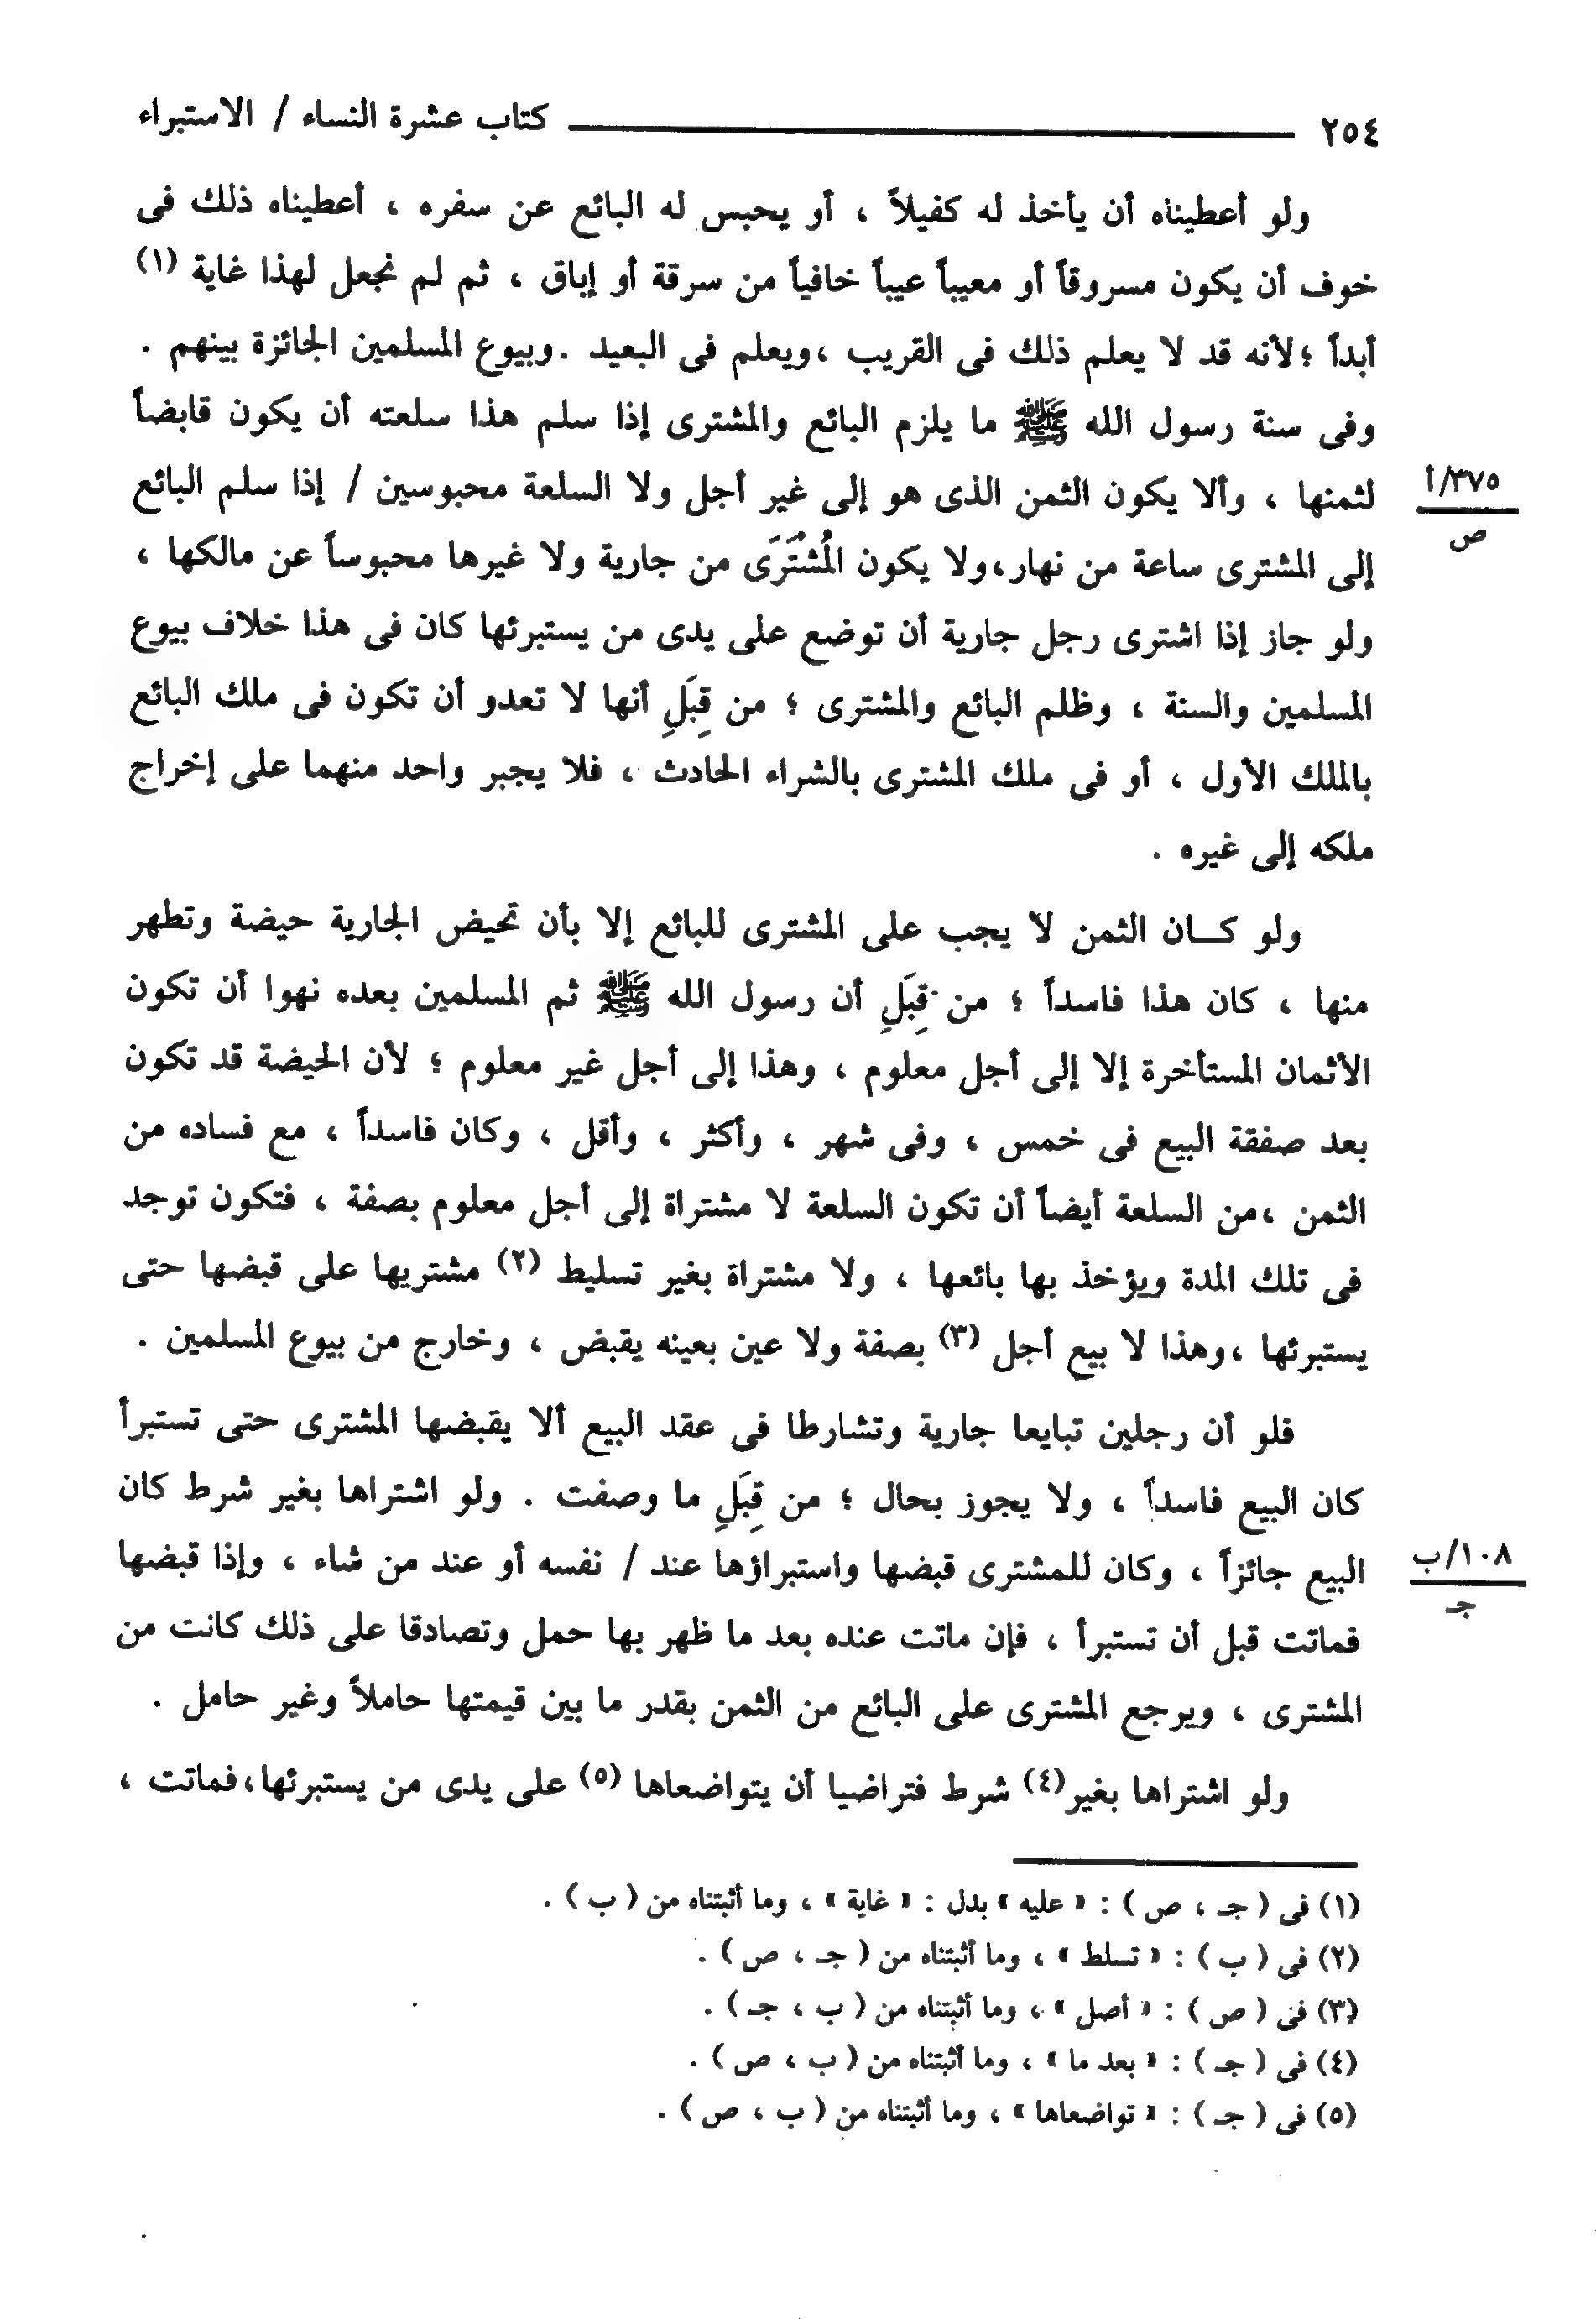 ٢٥٤ كتاب عشرة النساء / الاستبراء
ولو أعطيناه أن يأخذ له كفيلاً ، أو يحبس له البائع عن سفره ، أعطيناه ذلك فى
خوف أن يكون مسروقاً أو معيباً عيباً خافياً من سرقة أو إباق ، ثم لم نجعل لهذا غاية (١)
أبداً ؛لأنه قد لا يعلم ذلك فى القريب ،ويعلم فى البعيد .وبيوع المسلمين الجائزة بينهم .
وفى سنة رسول الله ﷺ ما يلزم البائع والمشترى إذا سلم هذا سلعته أن يكون قابضاً
لثمنها ، وألا يكون الثمن الذى هو إلى غير أجل ولا السلعة محبوسين / إذا سلم البائع
٣٧٥/أ
ص
إلى المشترى ساعة من نهار،ولا يكون المُشتَرَى من جارية ولا غيرها محبوساً عن مالكها ،
ولو جاز إذا اشترى رجل جارية أن توضع على يدى من يستبرئها كان فى هذا خلاف بيوع
المسلمين والسنة ، وظلم البائع والمشترى ؛ من قِبَلِ أنها لا تعدو أن تكون فى ملك البائع
بالملك الأول ، أو فى ملك المشترى بالشراء الحادث ، فلا يجبر واحد منهما على إخراج
ملكه إلى غيره .
ولو كـــان الثمن لا يجب على المشترى للبائع إلا بأن تحيض الجارية حيضة وتطهر
منها ، كان هذا فاسداً ؛ من قِبَلِ أن رسول الله ﷺ ثم المسلمين بعده نهوا أن تكون
الأثمان المستأخرة إلا إلى أجل معلوم ، وهذا إلى أجل غير معلوم ؛ لأن الحيضة قد تكون
بعد صفقة البيع فى خمس ، وفى شهر ، وأكثر ، وأقل ، وكان فاسداً ، مع فساده من
الثمن ،من السلعة أيضاً أن تكون السلعة لا مشتراة إلى أجل معلوم بصفة ، فتكون توجد
فى تلك المدة ويؤخذ بها بائعها ، ولا مشتراة بغير تسليط (٢) مشتريها على قبضها حتى
يستبرئها ،وهذا لا بيع أجل (٣) بصفة ولا عين بعينه يقبض ، وخارج من بيوع المسلمين .
فلو أن رجلين تبايعا جارية وتشارطا فى عقد البيع ألا يقبضها المشترى حتى تستبرأ
كان البيع فاسداً ، ولا يجوز بحال ؛ من قِبَلِ ما وصفت . ولو اشتراها بغير شرط كان
البيع جائزاً ، وكان للمشترى قبضها واستبراؤها عند / نفسه أو عند من شاء ، وإذا قبضها
١٠٨/ب
جـ
فماتت قبل أن تستبرأ ، فإن ماتت عنده بعد ما ظهر بها حمل وتصادقا على ذلك كانت من
المشترى ، ويرجع المشترى على البائع من الثمن بقدر ما بين قيمتها حاملاً وغير حامل .
ولو اشتراها بغير(٤) شرط فتراضيا أن يتواضعاها (٥) على يدى من يستبرئها،فماتت ،
(١) فى ( جـ ، ص ) : « عليه » بدل : « غاية » ، وما أثبتناه من ( ب ) .
(٢) فى ( ب ) : « تسلط » ، وما أثبتناه من ( جـ ، ص ) .
(٣) فى ( ص ) : « أصل » ، وما أثبتناه من ( ب ، جـ ) .
(٤) فى ( جـ ) : « بعد ما » ، وما أثبتناه من ( ب ، ص ) .
(٥) فى ( جـ ) : « تواضعاها » ، وما أثبتناه من ( ب ، ص ) .